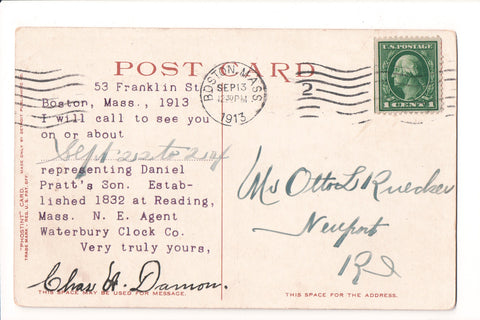 POST CARD
53 Franklin St
Boston, Mass., 1913
I will call to see you
on or about
Sept
representing Daniel
Pratt's Son. Estab-
lished 1832 at Reading,
Mass. N. E. Agent
Waterbury Clock Co.
Very truly yours,
Chas A. Damon.
THIS SPACE MAY BE USED FOR MESSAGE.
"PHOSTINT" CARD. MADE ONLY BY DETROIT
BOSTON, MASS.
SEP 13
12 30 PM
1913
2
U.S. POSTAGE
1 CENT 1
Mr Otto L Ruecker
Newport
RI
THIS SPACE FOR THE ADDRESS.